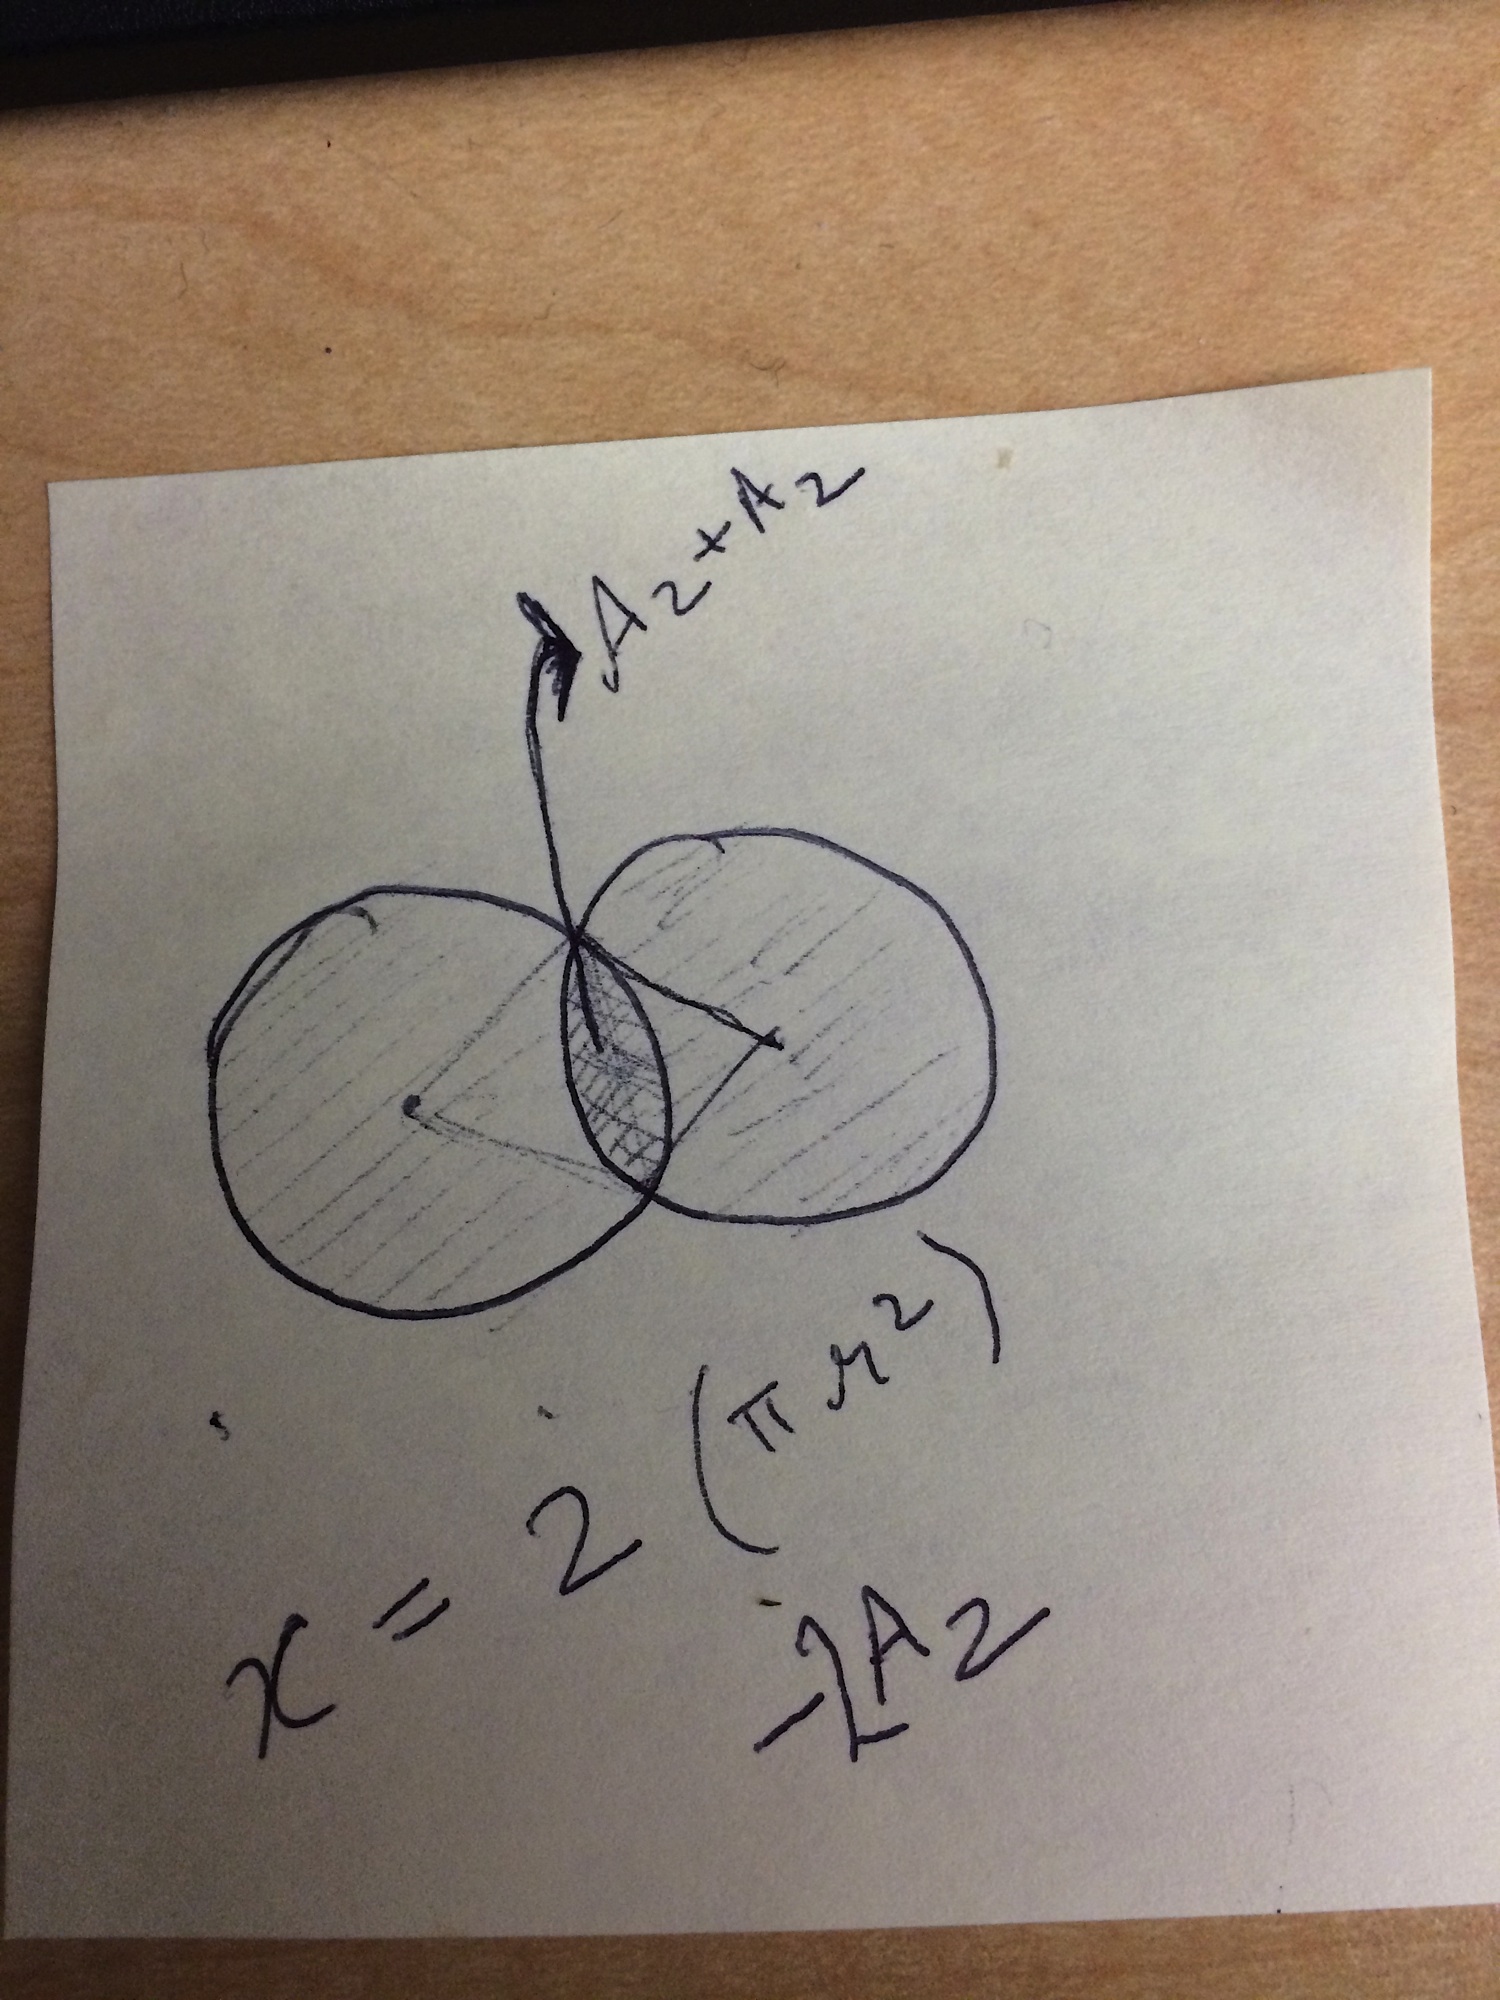 A2+A2
x = 2 (πr²)
-2A2